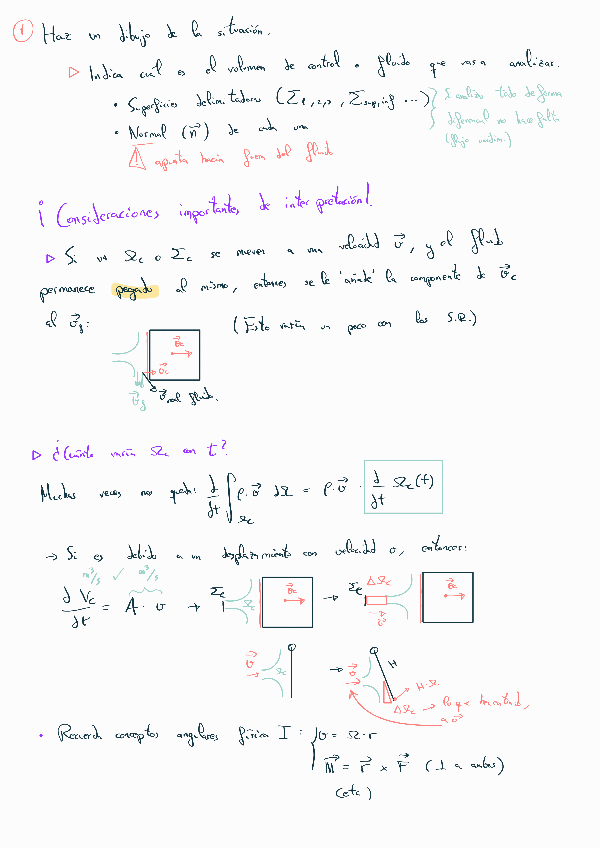 ① Haz un dibujo de la situación.
▷ Indica cuál es el volumen de control o fluido que vas a analizar.
• Superficies delimitadoras (Σ1,2,3, Σsup,inf ...)
Si analizo todo de forma
diferencial no hace falta
(flujo unidim.)
• Normal (n⃗) de cada una
⚠ apunta hacia fuera del fluido
¡Consideraciones importantes de interpretación!
▷ Si un Ωc o Σc se mueve a una velocidad v⃗, y el fluido
permanece pegado al mismo, entonces se le 'añade' la componente de v⃗c
al v⃗f: (Esto varía un poco con los S.R.)
v⃗c
v⃗c
v⃗f
v⃗real fluido.
▷ ¿Cuánto varía Ωc con t?
Muchas veces nos queda: d/dt ∫Ωc ρ·v⃗ dΩ = ρ·v⃗ · d/dt Ωc(t)
→ Si es debido a un desplazamiento con velocidad v, entonces:
m³/s ✓ m³/s
dVc/dt = A · v → Σc Ωc v⃗c → Σc ΔΩc v⃗ v⃗c
v⃗ Ωc → v⃗ H
H·Ω
ΔΩc → Porque
a v⃗
• Recuerda conceptos angulares física I: { v = Ω·r
M⃗ = r⃗ x F⃗ (⊥ a ambos)
(etc)